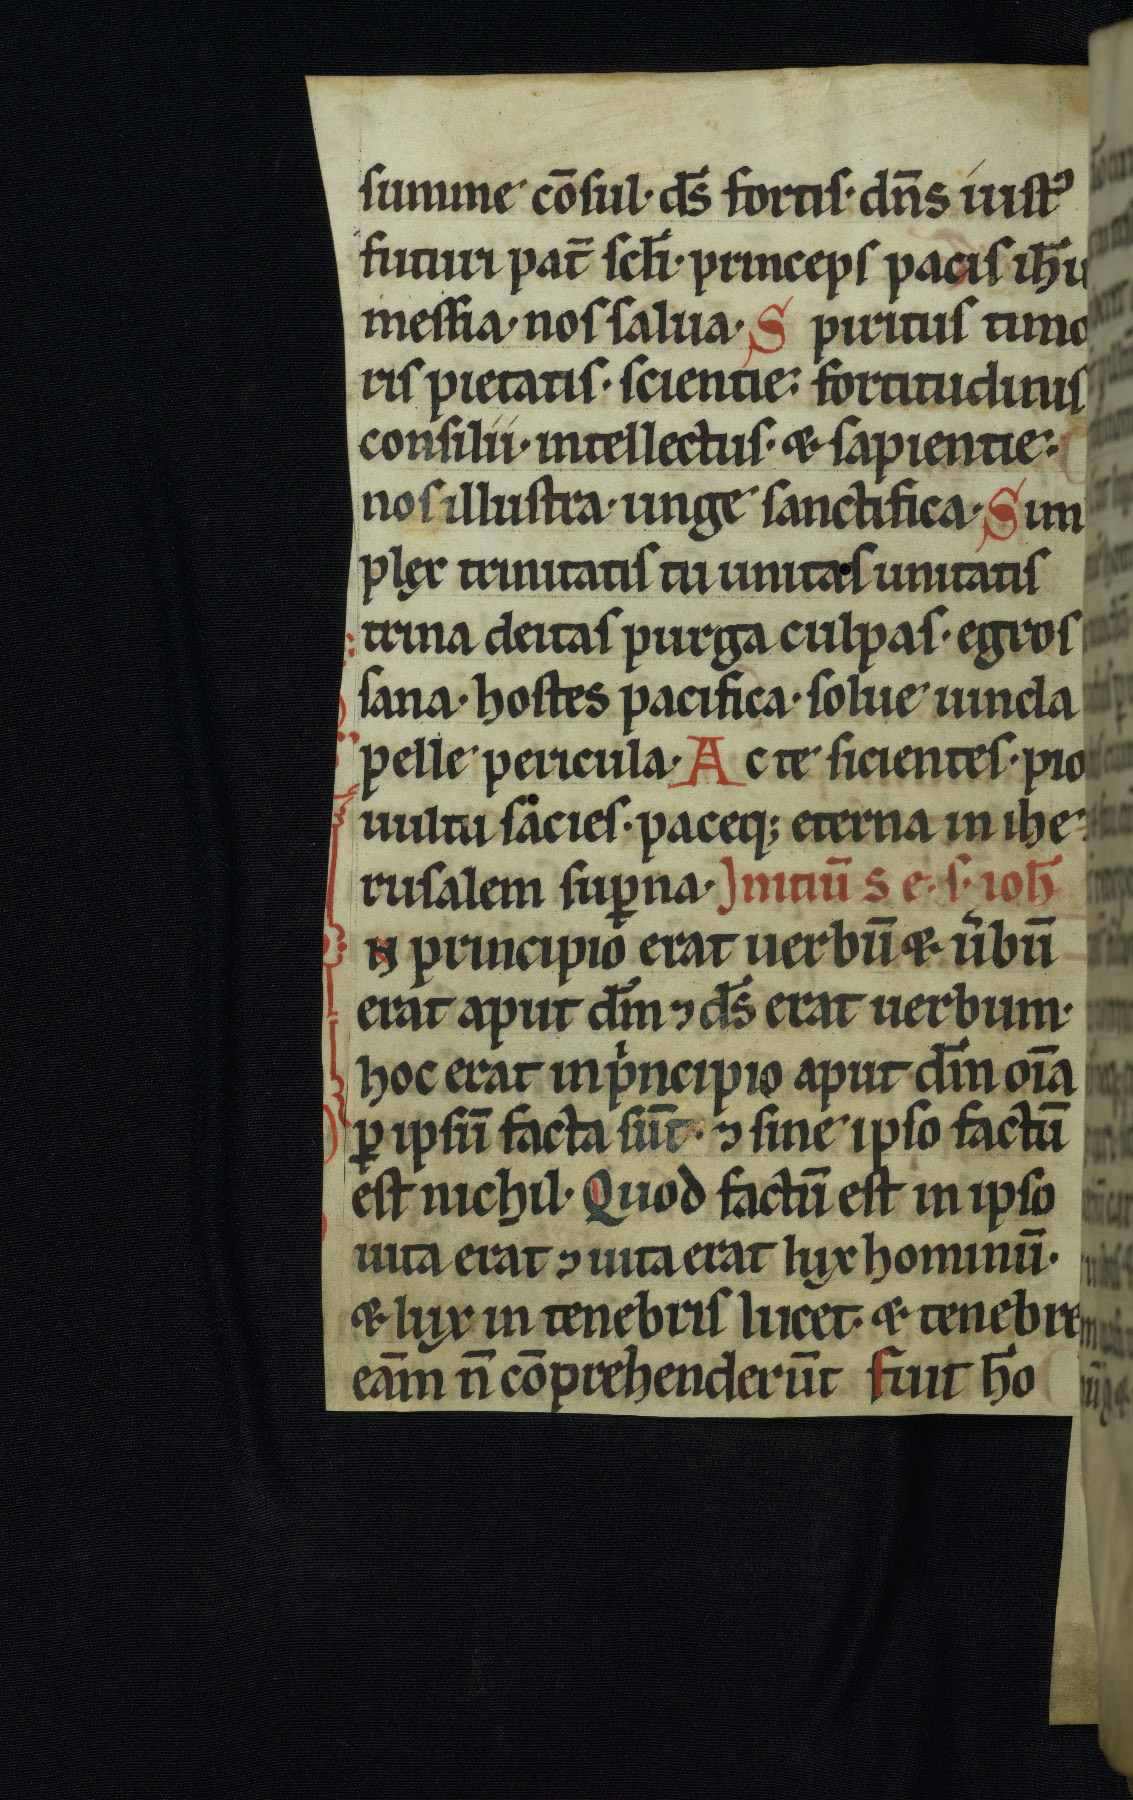 summe cōsul· ds̄ fortis· dn̄s iustꝰ
futuri pat̄ scl̄i· princeps pacis ih̄u
messia· nos salua· S piritus timo
ris pietatis· scientie: fortitudinis
consilii· intellectus· & sapientie:
nos illustra· unge sanctifica· Sim
plex trinitatis tu unitas unitatis
trina deitas purga culpas· egros
sana· hostes pacifica· solue uincla
pelle pericula· Ac te sicientes· pio
uultu sacies· paceq; eterna in ihe
rusalem suꝑna· Initiū s e· s· ioh̄
N principio erat uerbū & ūbū
erat aput dm̄ ⁊ ds̄ erat uerbum·
hoc erat in pͥncipio aput dm̄ oīa
ꝑ ipsū facta sūt· ⁊ sine ipso factū
est nichil· Quod factū est in ipso
uita erat ⁊ uita erat lux hominū·
& lux in tenebris lucet· & tenebre
eām n̄ cōprehenderūt fuit h̄o